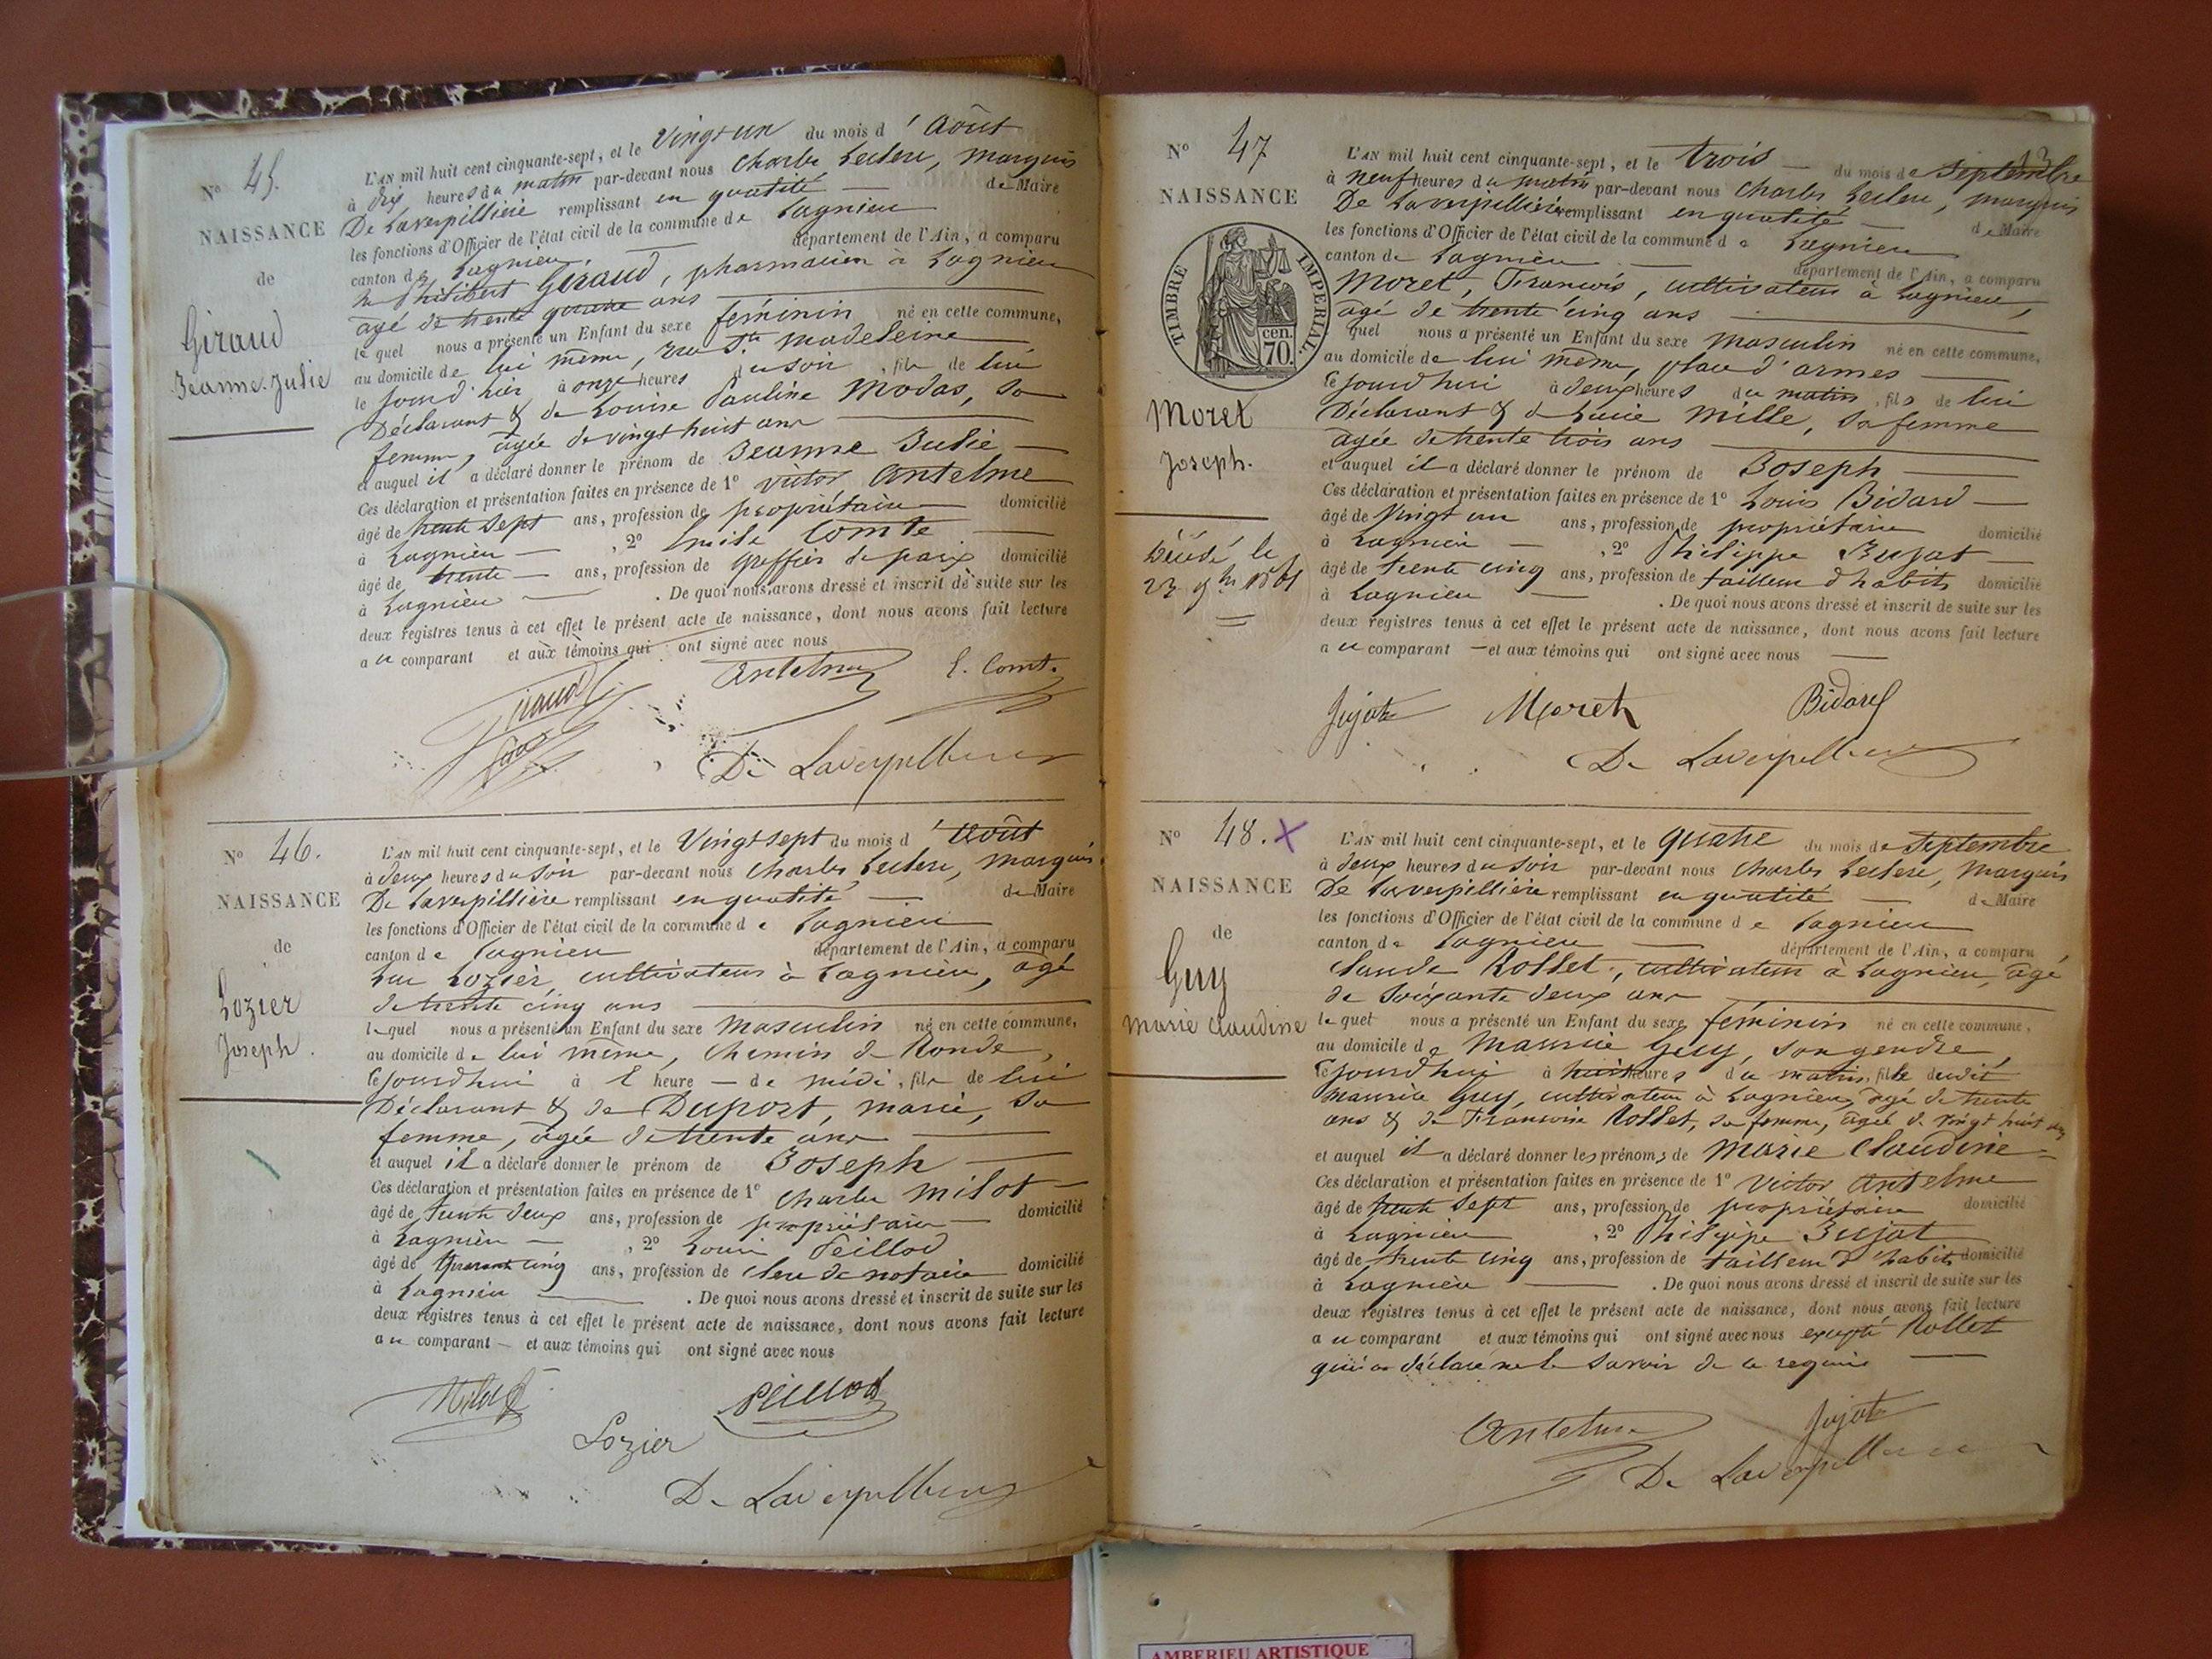 N° 45.
NAISSANCE
de
Giraud
Jeanne-Julie
L'AN mil huit cent cinquante-sept, et le Vingt un du mois d'Août
à dix heures du matin par-devant nous Charles Leclerc, marquis
De Laverpillière remplissant en qualité de Maire
les fonctions d'Officier de l'état civil de la commune de Lagnieu
canton de Lagnieu département de l'Ain, a comparu
Philibert Giraud, pharmacien à Lagnieu
âgé de trente quatre ans
lequel nous a présenté un Enfant du sexe féminin né en cette commune,
au domicile de lui même, rue Ste Madeleine
le jourd'hier à onze heures du soir, fils de lui
Déclarant & de Louise Pauline Modas, sa
femme, âgée de vingt huit ans
et auquel il a déclaré donner le prénom de Jeanne Julie
Ces déclaration et présentation faites en présence de 1° Victor Antelme
âgé de trente sept ans, profession de propriétaire domicilié
à Lagnieu, 2° Emile Comte
âgé de trente ans, profession de greffier de paix domicilié
à Lagnieu. De quoi nous avons dressé et inscrit de suite sur les
deux registres tenus à cet effet le présent acte de naissance, dont nous avons fait lecture
au comparant et aux témoins qui ont signé avec nous
Giraud Antelme E. Comte
De Laverpilliere
N° 46.
NAISSANCE
de
Lozier
Joseph.
L'AN mil huit cent cinquante-sept, et le Vingt sept du mois d'Août
à deux heures du soir par-devant nous Charles Leclerc, marquis
De Laverpillière remplissant en qualité de Maire
les fonctions d'Officier de l'état civil de la commune de Lagnieu
canton de Lagnieu département de l'Ain, a comparu
Luc Lozier, cultivateur à Lagnieu, âgé
de trente cinq ans
lequel nous a présenté un Enfant du sexe Masculin né en cette commune,
au domicile de lui même, Chemin de Ronde,
cejourdhui à l heure de midi, fils de lui
Déclarant & de Duport, marie, sa
femme, âgée de trente ans
et auquel il a déclaré donner le prénom de Joseph
Ces déclaration et présentation faites en présence de 1° Charles Milot
âgé de trente deux ans, profession de propriétaire domicilié
à Lagnieu, 2° Louis Peillod
âgé de Quarante cinq ans, profession de clerc de notaire domicilié
à Lagnieu. De quoi nous avons dressé et inscrit de suite sur les
deux registres tenus à cet effet le présent acte de naissance, dont nous avons fait lecture
au comparant et aux témoins qui ont signé avec nous
Milot Peillod
Lozier
De Laverpilliere
13
N° 47
NAISSANCE
TIMBRE IMPERIAL.
cen. 70.
Moret
Joseph.
Décédé le
23 9bre
L'AN mil huit cent cinquante-sept, et le trois du mois de Septembre
à neuf heures du matin par-devant nous Charles Leclerc, marquis
De Laverpillière remplissant en qualité de Maire
les fonctions d'Officier de l'état civil de la commune de Lagnieu
canton de Lagnieu département de l'Ain, a comparu
Moret, François, cultivateur à Lagnieu,
âgé de trente cinq ans
quel nous a présenté un Enfant du sexe Masculin né en cette commune,
au domicile de lui même, place d'armes
cejourdhui à deux heures du matin, fils de lui
Déclarant & de Lucie Mille, sa femme
âgée de trente trois ans
et auquel il a déclaré donner le prénom de Joseph
Ces déclaration et présentation faites en présence de 1° Louis Bidard
âgé de Vingt un ans, profession de propriétaire domicilié
à Lagnieu, 2° Philippe Jujat
âgé de trente cinq ans, profession de tailleur d'habits domicilié
à Lagnieu. De quoi nous avons dressé et inscrit de suite sur les
deux registres tenus à cet effet le présent acte de naissance, dont nous avons fait lecture
au comparant et aux témoins qui ont signé avec nous
Jujat Moret Bidard
De Laverpilliere
N° 48. X
NAISSANCE
de
Guy
Marie Claudine
L'AN mil huit cent cinquante-sept, et le quatre du mois de Septembre
à deux heures du soir par-devant nous Charles Leclerc, marquis
De Laverpillière remplissant en qualité de Maire
les fonctions d'Officier de l'état civil de la commune de Lagnieu
canton de Lagnieu département de l'Ain, a comparu
Claude Rollet, cultivateur à Lagnieu, âgé
de soixante deux ans
lequel nous a présenté un Enfant du sexe féminin né en cette commune,
au domicile de Maurice Guy, son gendre,
cejourdhui à huit heures du matin, fille dudit
Maurice Guy, cultivateur à Lagnieu, âgé de trente
ans & de Françoise Rollet, sa femme, âgée de vingt huit ans
et auquel il a déclaré donner les prénoms de Marie Claudine
Ces déclaration et présentation faites en présence de 1° Victor Antelme
âgé de trente sept ans, profession de propriétaire domicilié
à Lagnieu, 2° Philippe Jujat
âgé de trente cinq ans, profession de tailleur d'habits domicilié
à Lagnieu. De quoi nous avons dressé et inscrit de suite sur les
deux registres tenus à cet effet le présent acte de naissance, dont nous avons fait lecture
au comparant et aux témoins qui ont signé avec nous excepté Rollet
qui a déclaré ne le savoir de ce requis
Antelme Jujat
De Laverpilliere
AMBERIEU ARTISTIQUE